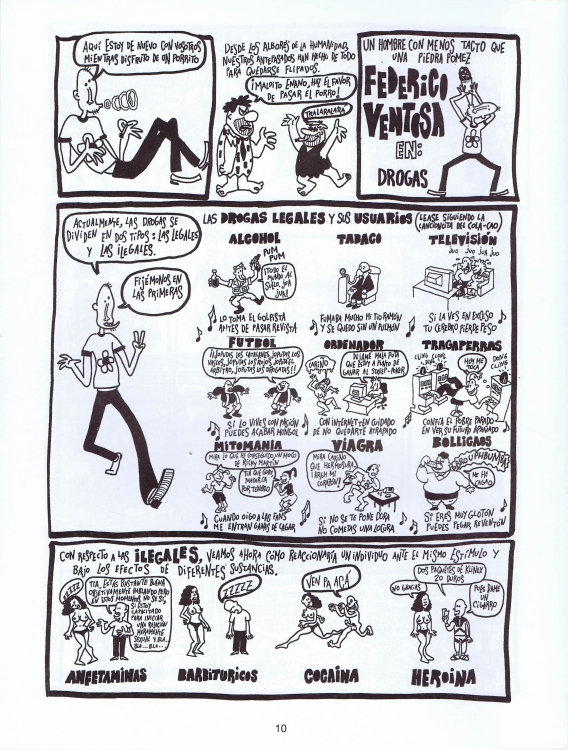 AQUÍ ESTOY DE NUEVO CON VOSOTROS
MIENTRAS DISFRUTO DE UN PORRITO
DESDE LOS ALBORES DE LA HUMANIDAD,
NUESTROS ANTEPASADOS HAN HECHO DE TODO
PARA QUEDARSE FLIPADOS.
¡MALDITO ENANO, HAZ EL FAVOR
DE PASAR EL PORRO!
TRALARALARA
UN HOMBRE CON MENOS TACTO QUE
UNA PIEDRA POMEZ
FEDERICO
VENTOSA
EN:
DROGAS
ACTUALMENTE, LAS DROGAS SE
DIVIDEN EN DOS TIPOS: LAS LEGALES
Y LAS ILEGALES.
FIJÉMONOS EN
LAS PRIMERAS
LAS DROGAS LEGALES Y SUS USUARIOS (LEASE SIGUIENDO LA
CANCIONCITA DEL COLA-CAO)
ALCOHOL
PUM
PUM
¡TODO EL
MUNDO AL
SUELO, JUA
JUA!
LO TOMA EL GOLPISTA
ANTES DE PASAR REVISTA
TABACO
FUMABA MUCHO MI TIO RAMÓN
Y SE QUEDÓ SIN UN PULMÓN
TELEVISIÓN
JUO JUO JUA JUO
SI LA VES EN EXCESO
TU CEREBRO PIERDE PESO
FUTBOL
¡¡JOPUTAS LOS CATALANES, JOPUTAS LOS
VASCOS, JOPUTAS LOS ROJOS, JOPUTA EL
ARBITRO, JOPUTAS LOS DROGATAS!!
SI LO VIVES CON PASIÓN
PUEDES ACABAR MONGOL
ORDENADOR
CARIÑO
DEJAME MALA PUTA
QUE ESTOY A PUNTO DE
GANAR AL STRIP-POKER
CON INTERNET TEN CUIDADO
DE NO QUEDARTE ATRAPADO
TRAGAPERRAS
CLING CLONG
DONG
HOY ME
TOCA
DONG
CLING
CONFÍA EL POBRE PARADO
EN VER SU FUTURO APAÑADO
MITOMANÍA
MIRA LO QUE HE CONSEGUIDO, UN MOCO
DE RICKY MARTIN
CUANDO OIGO A LAS FANS
ME ENTRAN GANAS DE CAGAR
VIAGRA
MIRA CARIÑO
QUE HERMOSURA
¡ARGH MI
CORAZÓN!
SI NO SE TE PONE DURA
NO COMETAS UNA LOCURA
BOLLICAOS
ME HE
CAGAO
SI ERES MUY GLOTÓN
PUEDES PEGAR REVENTÓN
CON RESPECTO A LAS ILEGALES, VEAMOS AHORA CÓMO REACCIONARÍA UN INDIVIDUO ANTE EL MISMO ESTÍMULO Y
BAJO LOS EFECTOS DE DIFERENTES SUSTANCIAS.
TIA, ESTAS BASTANTE BUENA
OBJETIVAMENTE HABLANDO PERO
EN ESTOS MOMENTOS NO SE SI
SI ESTOY
CAPACITADO
PARA INICIAR
UNA RELACIÓN
MERAMENTE
SEXUAL Y BLA..
BLA... BLA...
ANFETAMINAS
ZZZZZ
BARBITURICOS
VEN PA ACÁ
COCAINA
NO GRACIAS
DOS PAQUETES DE KLINEX
20 DUROS
PUES DAME UN
CIGARRO
HEROINA
10